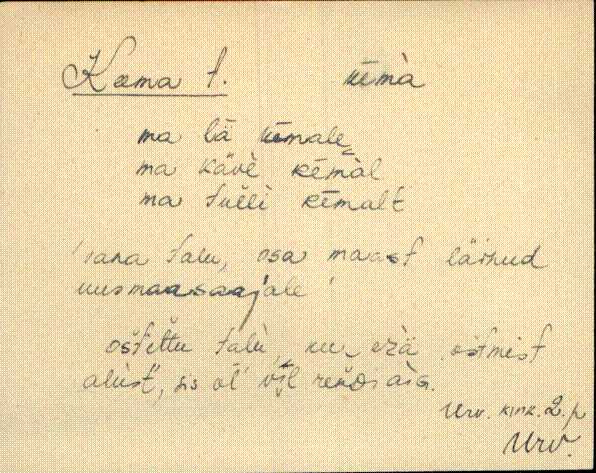 Kema t. kēmà
ma lä kēmale
ma kävè kēmàl
ma tulli kēmalt
'vana talu, osa maast läinud
uusmaasaajale'
ostettu talù, ku erä ostmist
alùst, sis ol' vīl
Urv. kihk. 2. p
Urv.